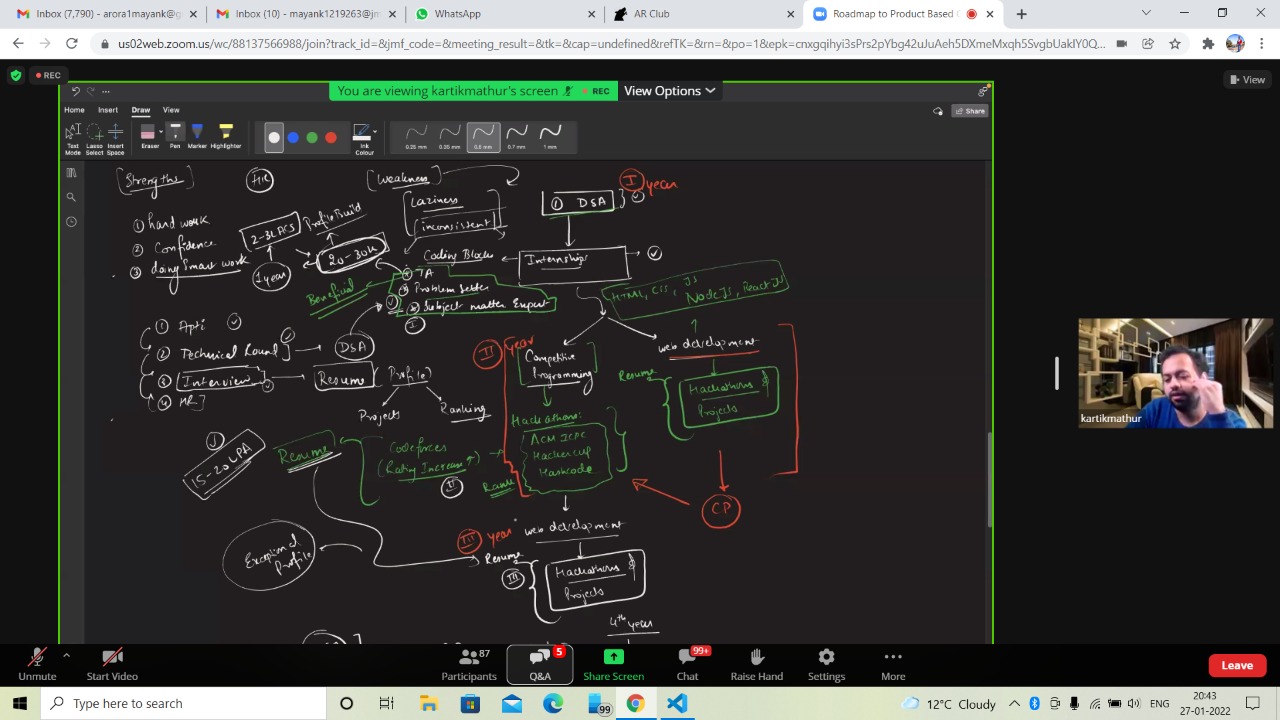 Inbox (7,790) - arose1mayank@g
Inbox (10) - mayank1219263@jm
WhatsApp
AR Club
Roadmap to Product Based
us02web.zoom.us/wc/88137566988/join?track_id=&jmf_code=&meeting_result=&tk=&cap=undefined&refTK=&rn=&po=1&epk=cnxgqihyi3sPrs2pYbg42uJuAeh5DXmeMxqh5SvgbUakIY0Q...
REC
You are viewing kartikmathur's screen
REC
View Options
View
Home Insert Draw View
Share
Text Mode
Lasso Select
Insert Space
Eraser
Pen
Marker
Highlighter
Ink Colour
0.25 mm
0.35 mm
0.5 mm
0.7 mm
1 mm
[Strengths]
HR
[Weakness]
① hard work
② Confidence
③ doing Smart work
2-3 LPAS
Profile Build
1 year
20-30K
Laziness
inconsistent
① DSA
I year
Coding Blocks
Internships
Beneficial
TA
Problem Setter
Subject matter Expert
I
HTML, CSS, JS
NodeJS, ReactJS
① Apti
② Technical Round
DSA
③ Interview
Resume
④ HR
Profile
Projects
Ranking
II year
Competitive
Programming
web development
Resume
Hackathons &
Projects
Hackathons:
ACM ICPC
Hackercup
Hashcode
Rank
Codeforces
(Rating Increase ↑)
II
Resume
15-20 LPA
CP
Exceptional
Profile
III year
web development
Resume
III
Hackathons &
Projects
4th year
kartikmathur
Unmute
Start Video
Participants
87
Q&A
5
Share Screen
Chat
99+
Raise Hand
Settings
More
Leave
Type here to search
99
12°C Cloudy
ENG
20:43
27-01-2022